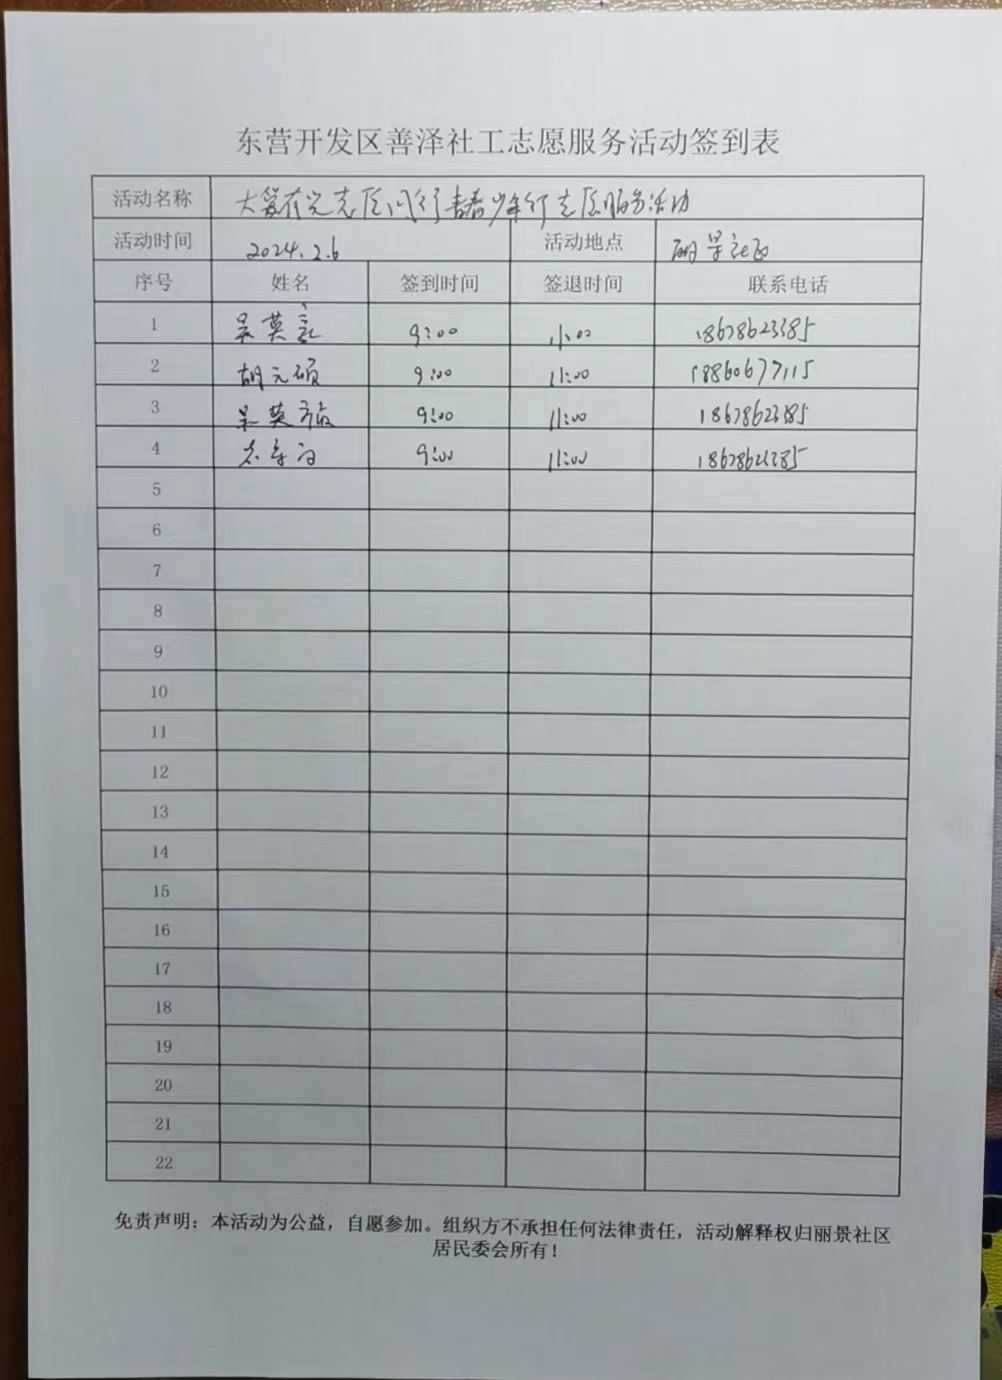 东营开发区善泽社工志愿服务活动签到表
活动名称 大爱有光志愿同行青春少年行志愿服务活动
活动时间 2024.2.6 活动地点 丽景社区
序号 姓名 签到时间 签退时间 联系电话
1 吴英 9:00 11:00 18678623385
2 胡元硕 9:00 11:00 18860677115
3 吴英 9:00 11:00 18678623385
4 9:00 11:00
5
6
7
8
9
10
11
12
13
14
15
16
17
18
19
20
21
22
免责声明：本活动为公益，自愿参加。组织方不承担任何法律责任，活动解释权归丽景社区
居民委会所有！